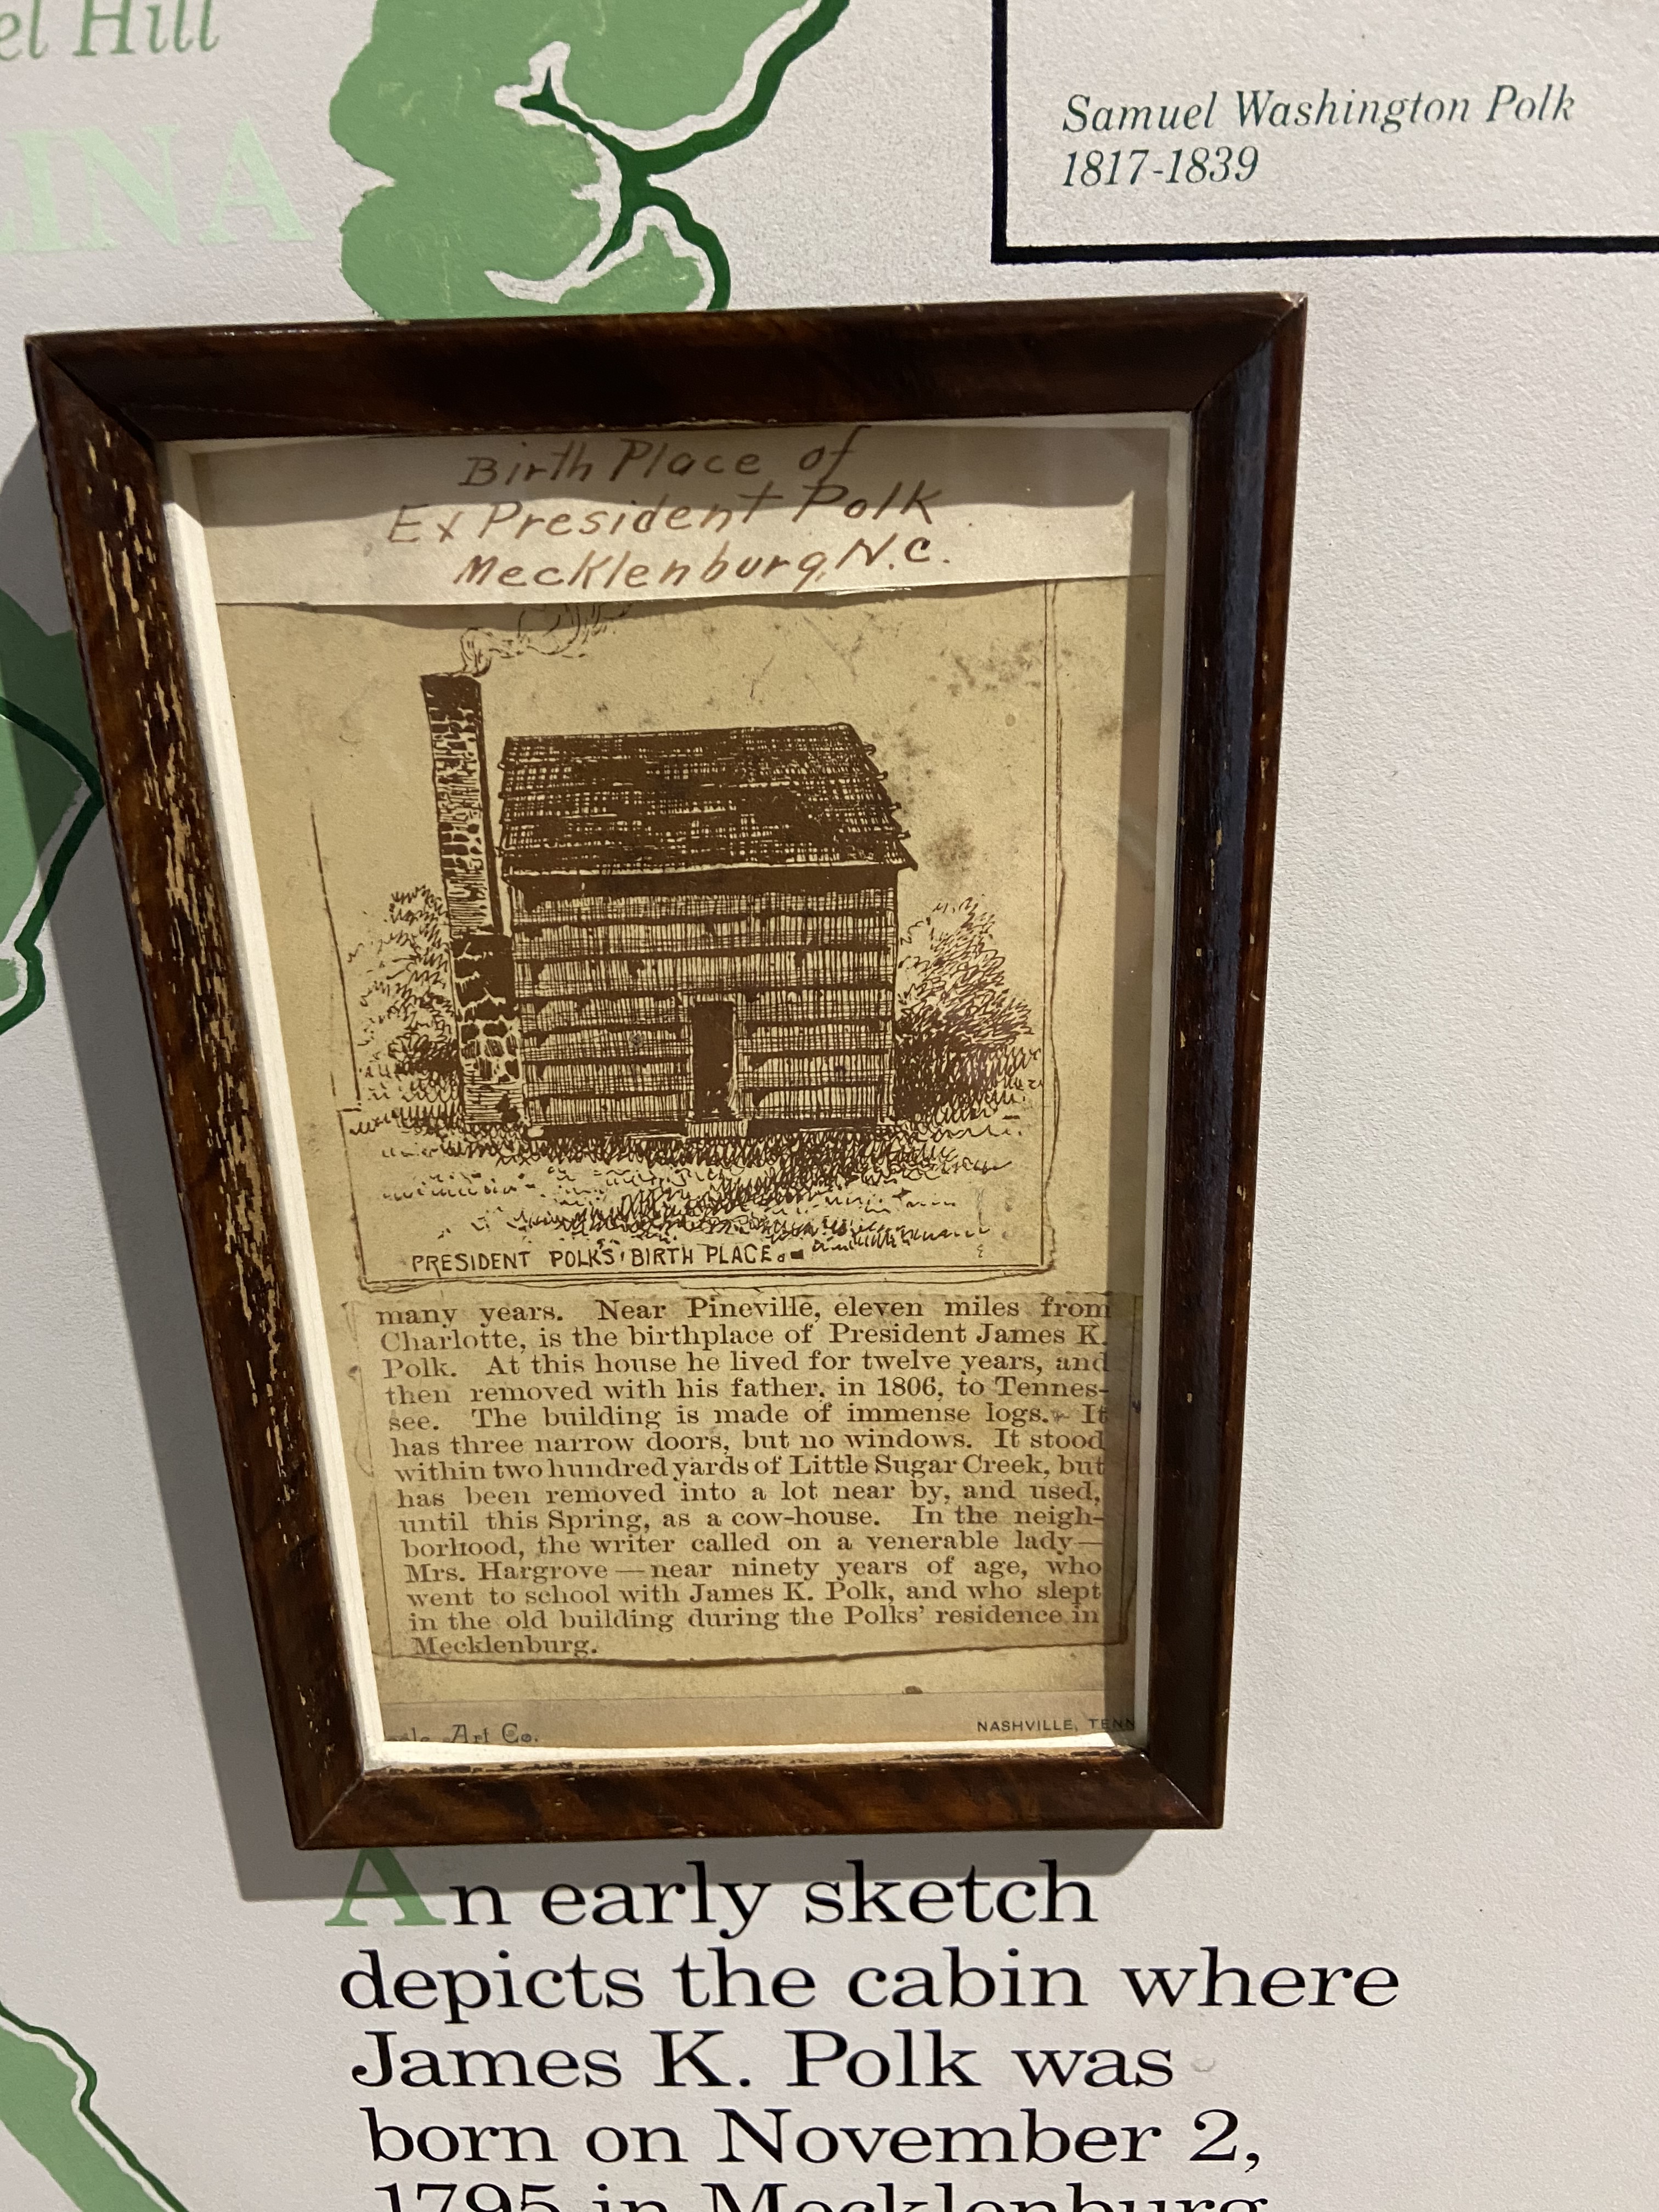 el Hill
LINA
Samuel Washington Polk
1817-1839
Birth Place of
Ex President Polk
Mecklenburg, N.C.
PRESIDENT POLK'S BIRTH PLACE.
many years. Near Pineville, eleven miles from
Charlotte, is the birthplace of President James K.
Polk. At this house he lived for twelve years, and
then removed with his father, in 1806, to Tennes-
see. The building is made of immense logs. It
has three narrow doors, but no windows. It stood
within two hundred yards of Little Sugar Creek, but
has been removed into a lot near by, and used,
until this Spring, as a cow-house. In the neigh-
borhood, the writer called on a venerable lady—
Mrs. Hargrove—near ninety years of age, who
went to school with James K. Polk, and who slept
in the old building during the Polks' residence in
Mecklenburg.
Art Co.
NASHVILLE, TENN
An early sketch
depicts the cabin where
James K. Polk was
born on November 2,
1795 in Mecklenburg